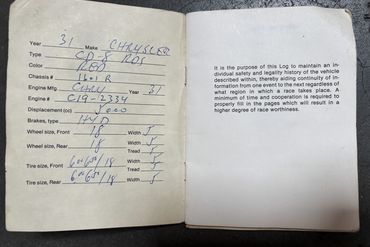 Year 31 Make CHRYSLER
Type CD-8 RDS
Color RED
Chassis # R
Engine Mfg CHRY 31
Engine # C19-2334
Displacement (cc) 5000
Brakes, type HYD
Wheel size, Front 18 Width 5
Wheel size, Rear 18 Width 5
Tread 5
Tire size, Front /18 Width 5
Tread 5
Tire size, Rear /18 Width 5
It is the purpose of this Log to maintain an in-
dividual safety and legality history of the vehicle
described within, thereby aiding continuity of in-
formation from one event to the next regardless of
what region in which a race takes place. A
minimum of time and cooperation is required to
properly fill in the pages which will result in a
higher degree of race worthiness.